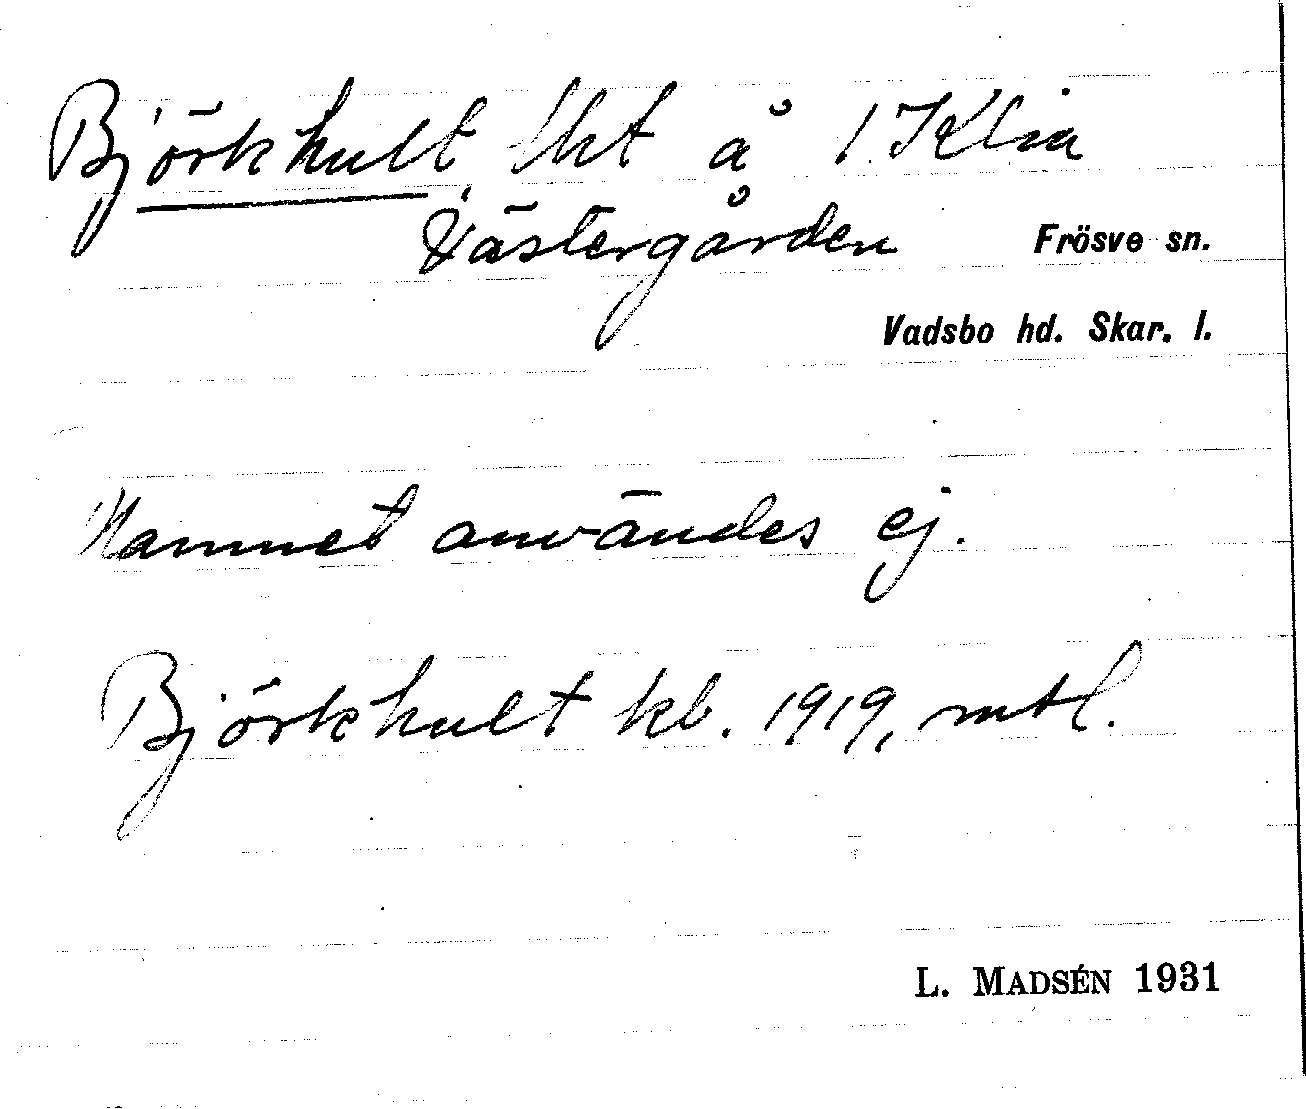 Björkhult, lht å 1 Klia
Västergården Frösve sn.
Vadsbo hd. Skar. l.
Namnet användes ej.
Björkhult kb. 1919, mtl.
L. MADSÉN 1931